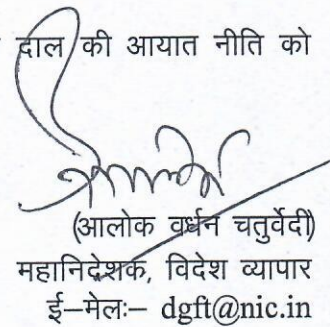 दाल की आयात नीति को
(आलोक वर्धन चतुर्वेदी)
महानिदेशक, विदेश व्यापार
ई–मेलः– dgft@nic.in